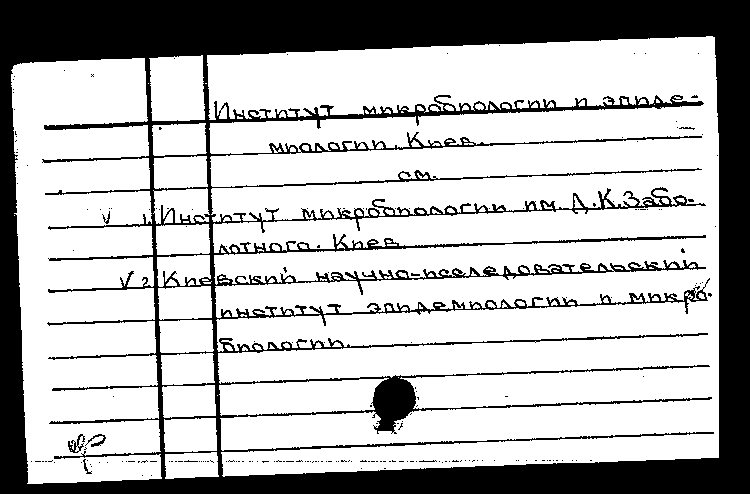 Институт микробиологии и эпиде-
миологии. Киев.
см.
V 1. Институт микробиологии им. Д.К.Забо-
лотного. Киев
V 2. Киевский научно-исследовательский
институт эпидемиологии и микро-
биологии.